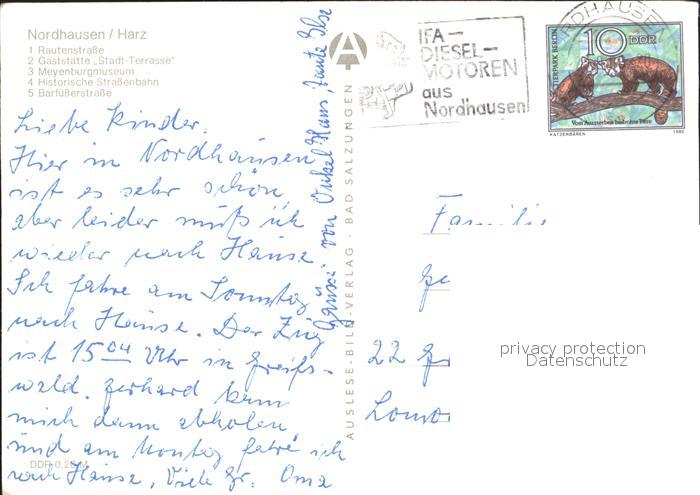 Nordhausen / Harz
1 Rautenstraße
2 Gaststätte „Stadt-Terrasse"
3 Meyenburgmuseum
4 Historische Straßenbahn
5 Barfüßerstraße
Liebe Kinder.
Hier in Nordhausen
ist es sehr schön
aber leider muß ich
wieder nach Hause.
Ich fahre am Sonntag
nach Hause. Der Zug
ist 15 04 Uhr in Greifs-
wald. Gerhard kann
mich dann abholen
und am Montag fahre ich
nach Hause, Viele Gr. Oma
Grüsse von Onkel Hans Tante Else
DDR 0,20 M
AUSLESE-BILD-VERLAG · BAD SALZUNGEN
A
IFA-
DIESEL-
MOTOREN
aus
Nordhausen
RDHAUSE
TIERPARK BERLIN
10 DDR
Vom Aussterben bedrohte Tiere
KATZENBÄREN 1985
Familie
Ge
22 Gr
privacy protection
Datenschutz